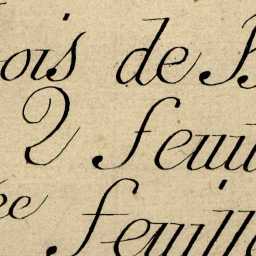 ois de B
2 feuil
ée feuille